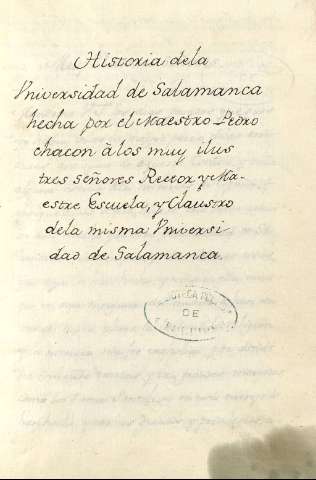 Historia dela
Vniversidad de Salamanca
hecha por el Maestro Pedro
chacon â los muy ilus
tres señores Rector y Ma-
estre Escuela, y Claustro
dela misma Vniversi
dad de Salamanca.
DE